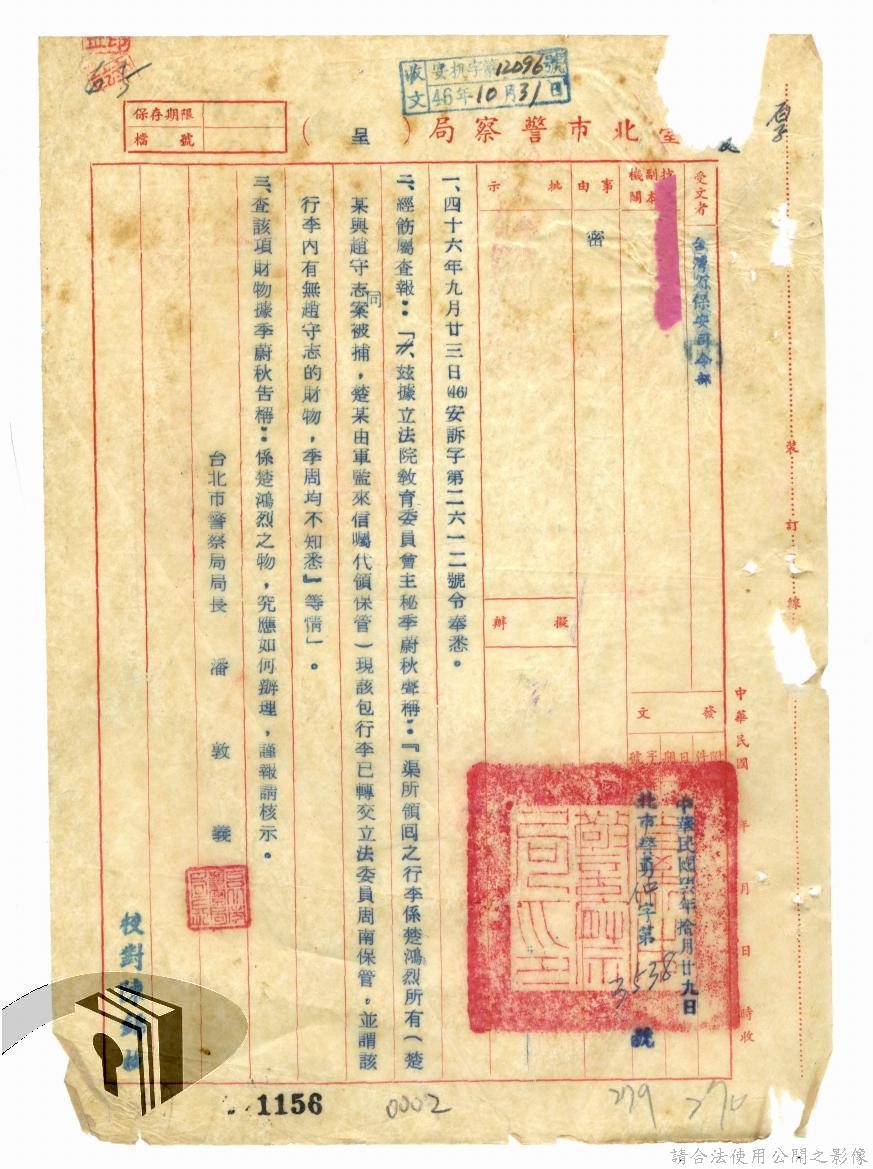 收文
安機字第12096號
46年10月31日
保存期限
檔號
北市警察局(呈)
受文者
台灣省保安司令部
副本
機關
事由
密
批示
擬辦
發文
字
日期
號
中華民國四六年拾月廿九日
北市警勇 字第3538號
一、四十六年九月廿三日(46)安訴字第二六一二號令奉悉。
二、經飭屬查報:「六、玆據立法院敎育委員會主秘季蔚秋聲稱:『渠所領回之行李係楚鴻烈所有(楚
某與趙守志同案被捕,楚某由軍監來信囑代領保管)現該包行李已轉交立法委員周南保管。並謂該
行李內有無趙守志的財物,季周均不知悉』等情」。
三、查該項財物據季蔚秋告稱:係楚鴻烈之物,究應如何辦理,謹報請核示。
台北市警察局局長 潘敦義
校對
裝訂線
中華民國 年 月 日 時收
1156
0002
279
270
請合法使用公開之影像